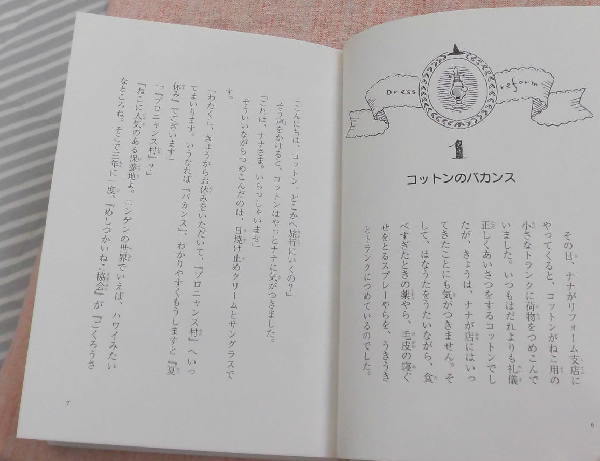 Dress Reform
1
コットンのバカンス
その日、ナナがリフォーム支店に
やってくると、コットンがねこ用の
小さなトランクに荷物をつめこんで
いました。いつもはだれよりも礼儀
正しくあいさつをするコットンでし
たが、きょうは、ナナが店にはいっ
てきたことにも気がつきません。そ
して、はなうたをうたいながら、食
べすぎたときの薬やら、毛皮の寝ぐ
せをとるスプレーやらを、うきうき
とトランクにつめているのでした。
6
「こんにちは、コットン。どこかへ旅行にいくの?」
そう声をかけると、コットンはやっとナナに気がつきました。
「これは、ナナさま。いらっしゃいませ」
そういいながらつめこんだのは、日焼け止めクリームとサングラスで
す。
「わたくし、きょうからお休みをいただいて、『プロニャンス村』へいっ
てまいります。いうなれば『バカンス』、わかりやすくもうしますと『夏
休み』でございます」
「『プロニャンス村』?」
「ねこに人気のある保養地よ。ニンゲンの世界でいえば、ハワイみたい
なところね。そこで三年に一度、『めしつかいね・協会』が『ごくろうさ
7